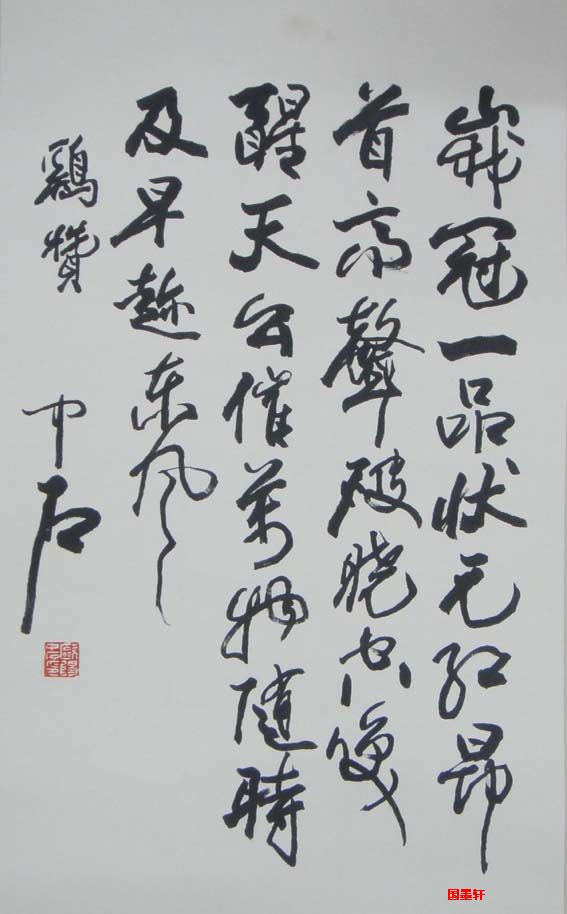 峩冠一品状元红昂
首高聲破晓空唤
醒天公催萬物随時
及早趂东风
鷄贊
中石
国墨轩